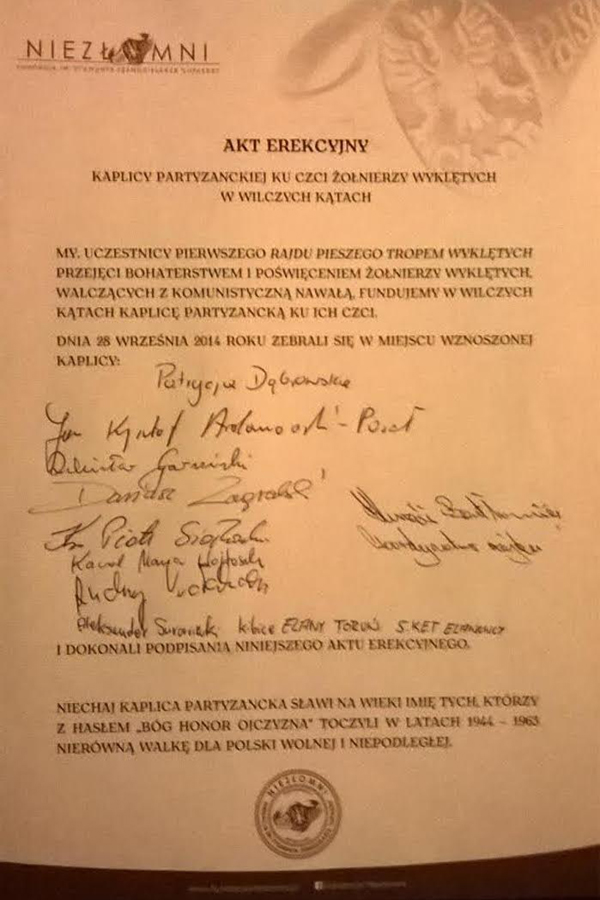 NIEZŁOMNI
AKT EREKCYJNY
KAPLICY PARTYZANCKIEJ KU CZCI ŻOŁNIERZY WYKLĘTYCH
W WILCZYCH KĄTACH
MY, UCZESTNICY PIERWSZEGO RAJDU PIESZEGO TROPEM WYKLĘTYCH
PRZEJĘCI BOHATERSTWEM I POŚWIĘCENIEM ŻOŁNIERZY WYKLĘTYCH,
WALCZĄCYCH Z KOMUNISTYCZNĄ NAWAŁĄ, FUNDUJEMY W WILCZYCH
KĄTACH KAPLICĘ PARTYZANCKĄ KU ICH CZCI.
DNIA 28 WRZEŚNIA 2014 ROKU ZEBRALI SIĘ W MIEJSCU WZNOSZONEJ
KAPLICY:
Patrycja Dąbrowska
Jan Krzysztof Ardanowski
Dariusz Zagralski
Ks. Piotr
Karol Maria Wojtasik
Andrzej
Aleksander kibice ELANY TORUŃ
I DOKONALI PODPISANIA NINIEJSZEGO AKTU EREKCYJNEGO.
NIECHAJ KAPLICA PARTYZANCKA SŁAWI NA WIEKI IMIĘ TYCH, KTÓRZY
Z HASŁEM „BÓG HONOR OJCZYZNA" TOCZYLI W LATACH 1944 – 1963
NIERÓWNĄ WALKĘ DLA POLSKI WOLNEJ I NIEPODLEGŁEJ.
NIEZŁOMNI